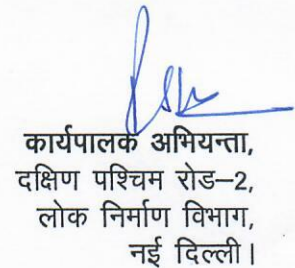 कार्यपालक अभियन्ता,
दक्षिण पश्चिम रोड–2,
लोक निर्माण विभाग,
नई दिल्ली।